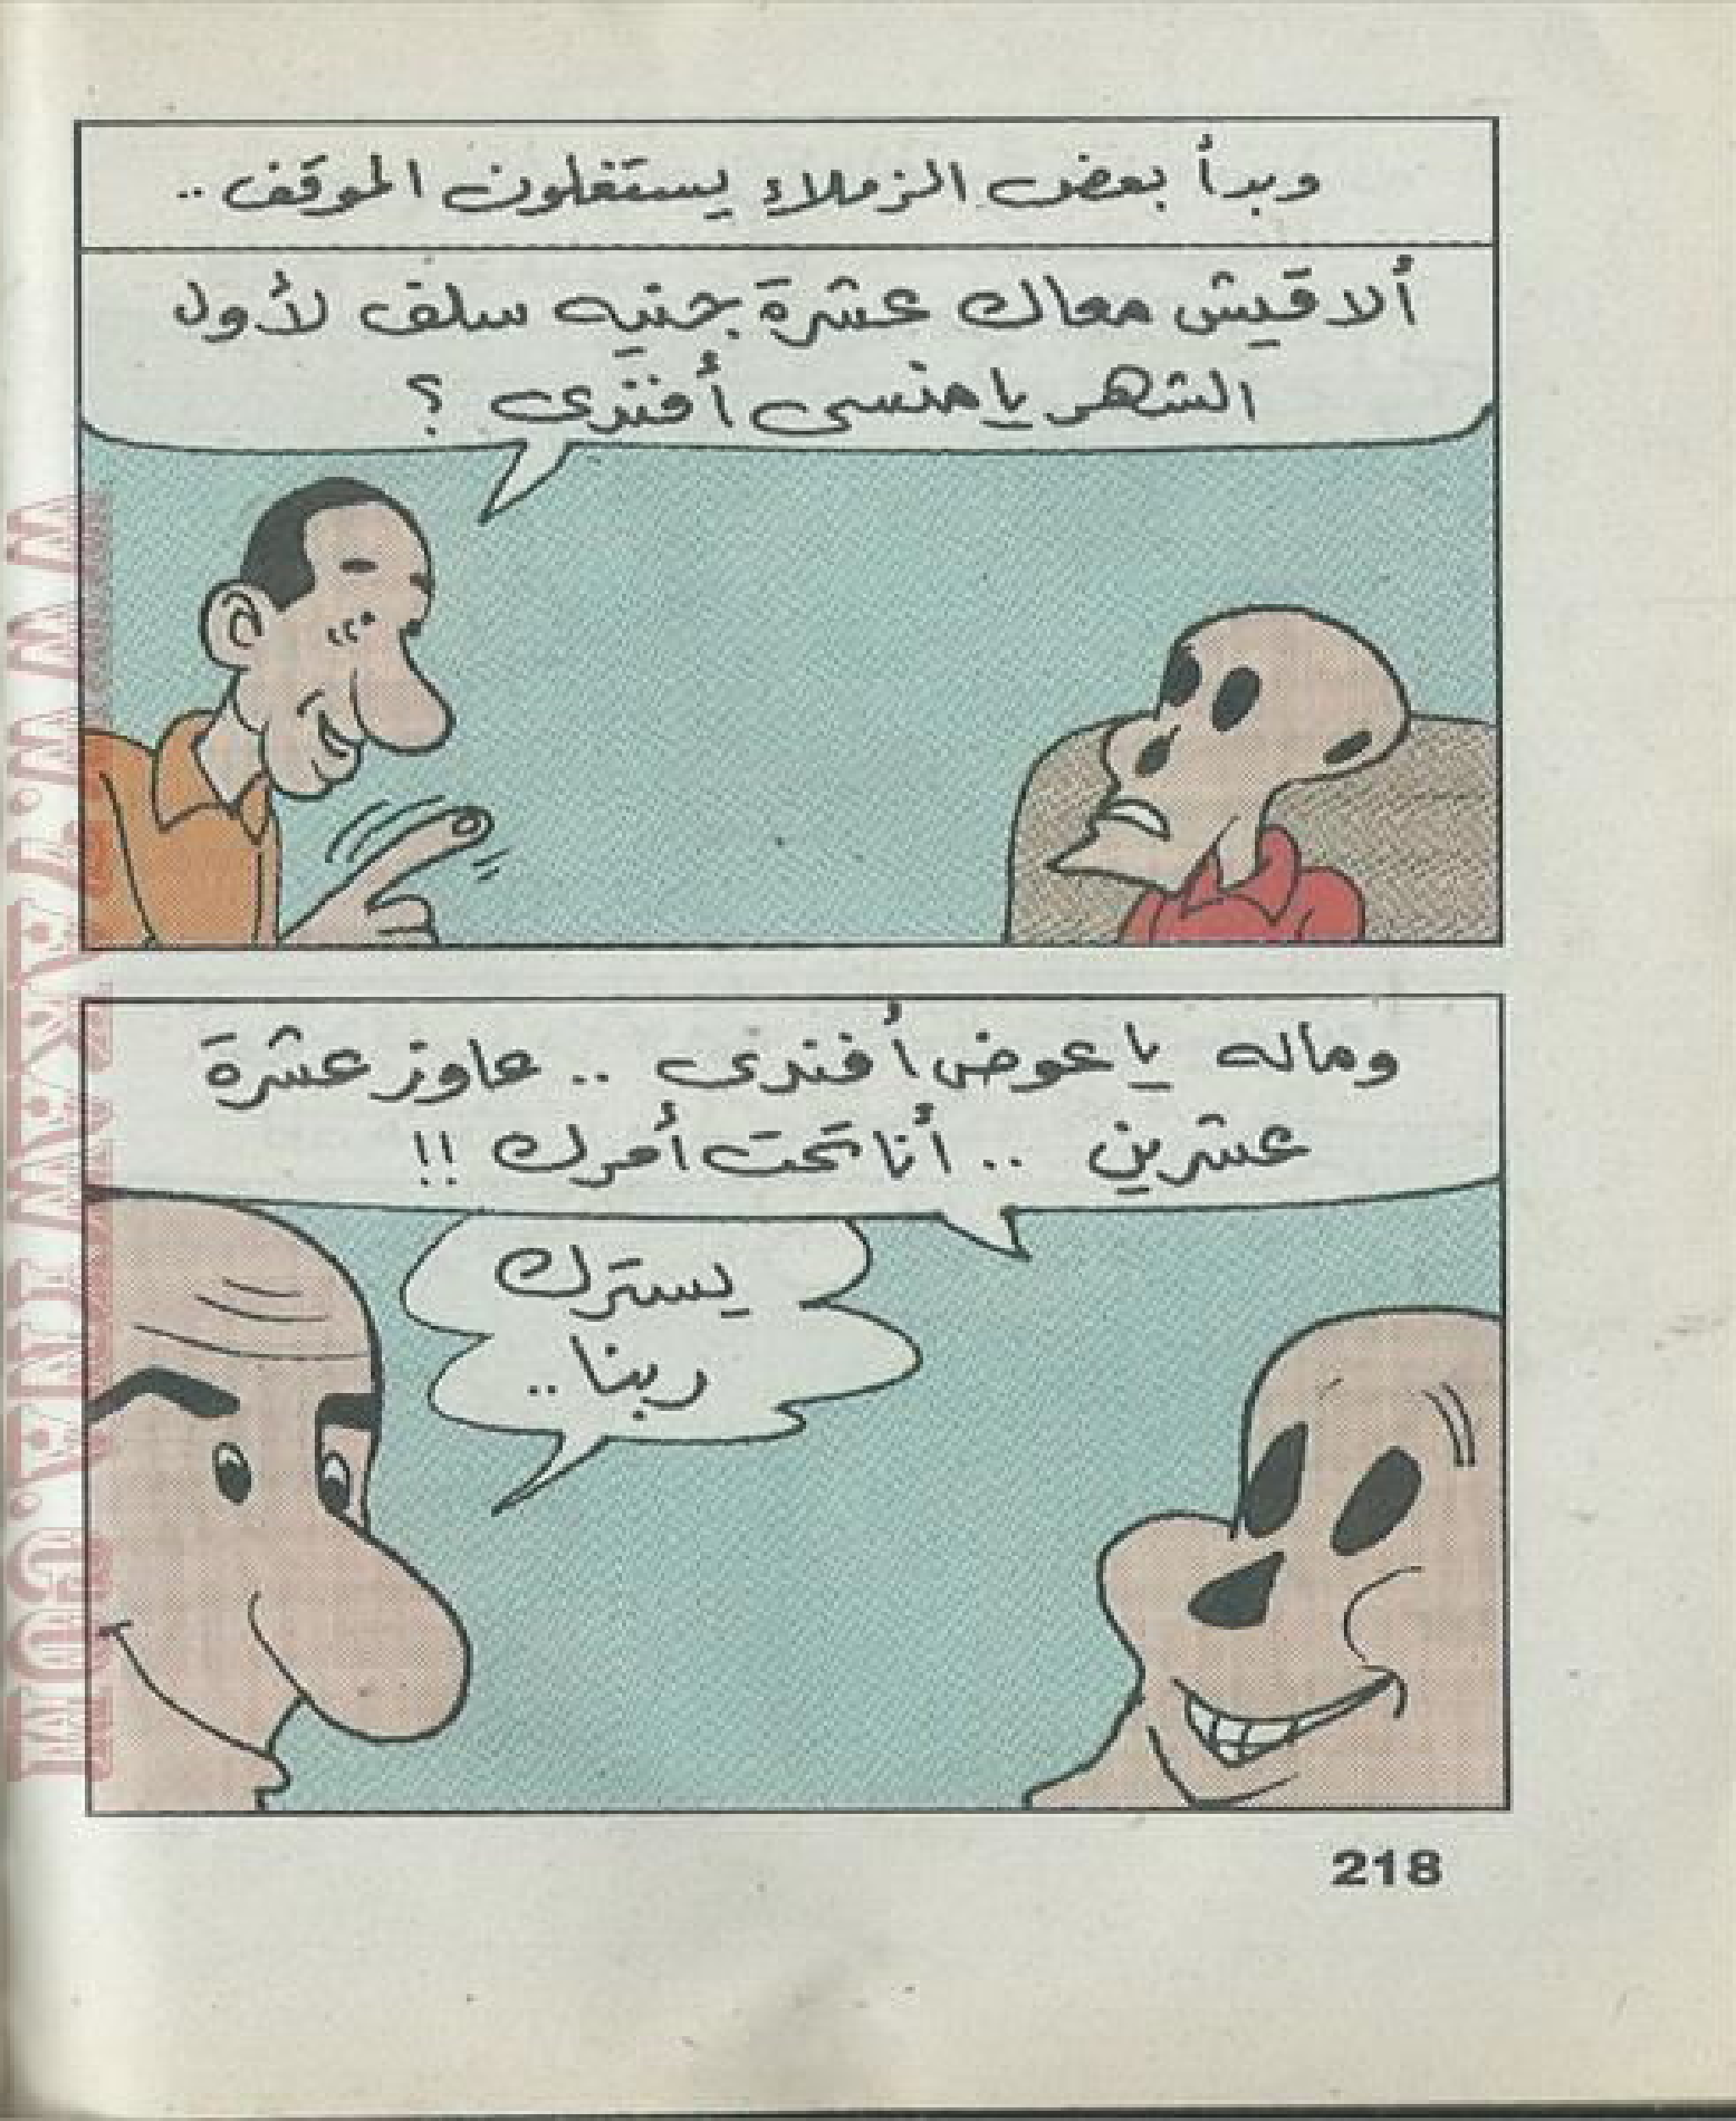 وبدأ بعض الزملاء يستغلون الموقف ..
ألاقيش معاك عشرة جنيه سلف لأول
الشهر يا منسى أفندى ؟
وماله يا عوض أفندى .. عاوز عشرة
عشرين .. أنا تحت أمرك !!
يسترك
ربنا ..
218